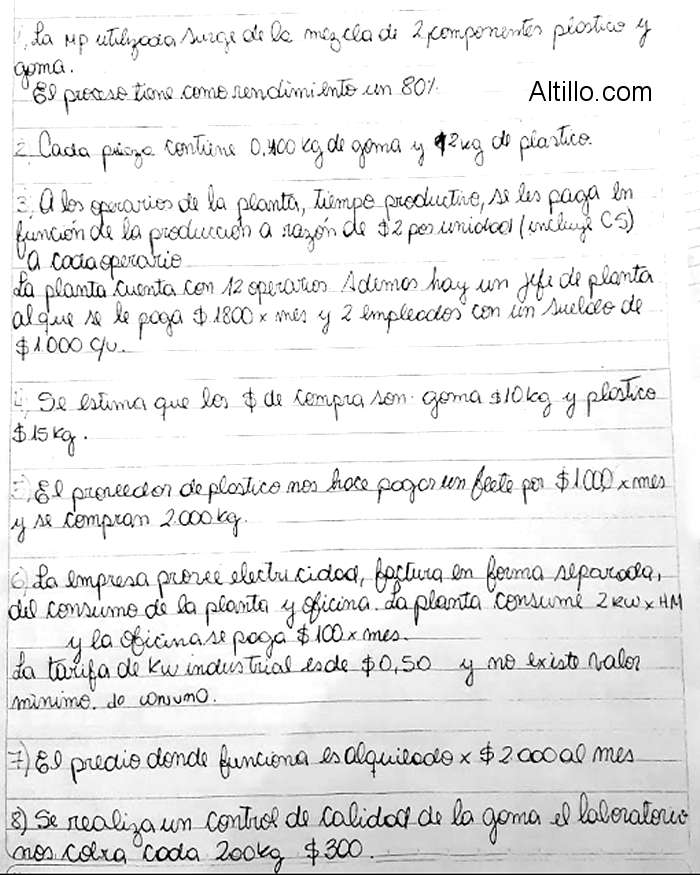 1, La MP utilizada surge de la mezcla de 2 componentes plastico y
goma.
El proceso tiene como rendimiento un 80%.
Altillo.com
2, Cada pieza contiene 0,400 kg de goma y 2 kg de plastico.
3, A los operarios de la planta, tiempo productivo, se les paga en
función de la producción a razón de $2 por unidad (incluye CS)
a cada operario
La planta cuenta con 12 operarios Ademas hay un jefe de planta
al que se le paga $1800 x mes y 2 empleados con un sueldo de
$1000 c/u.
4, Se estima que los $ de compra son. goma $10kg y plastico
$15kg.
5, El proveedor de plastico nos hace pagar un flete por $1000 x mes
y se compran 2.000 kg.
6) La empresa provee electricidad, factura en forma separada,
del consumo de la planta y oficina. La planta consume 2 KW x HM
y la oficina se paga $100 x mes.
La tarifa de KW industrial es de $0,50 y no existe valor
minimo. de consumo.
7) El predio donde funciona es alquilado x $2.000 al mes
8) Se realiza un control de calidad de la goma el laboratorio
nos cobra cada 200kg $300.